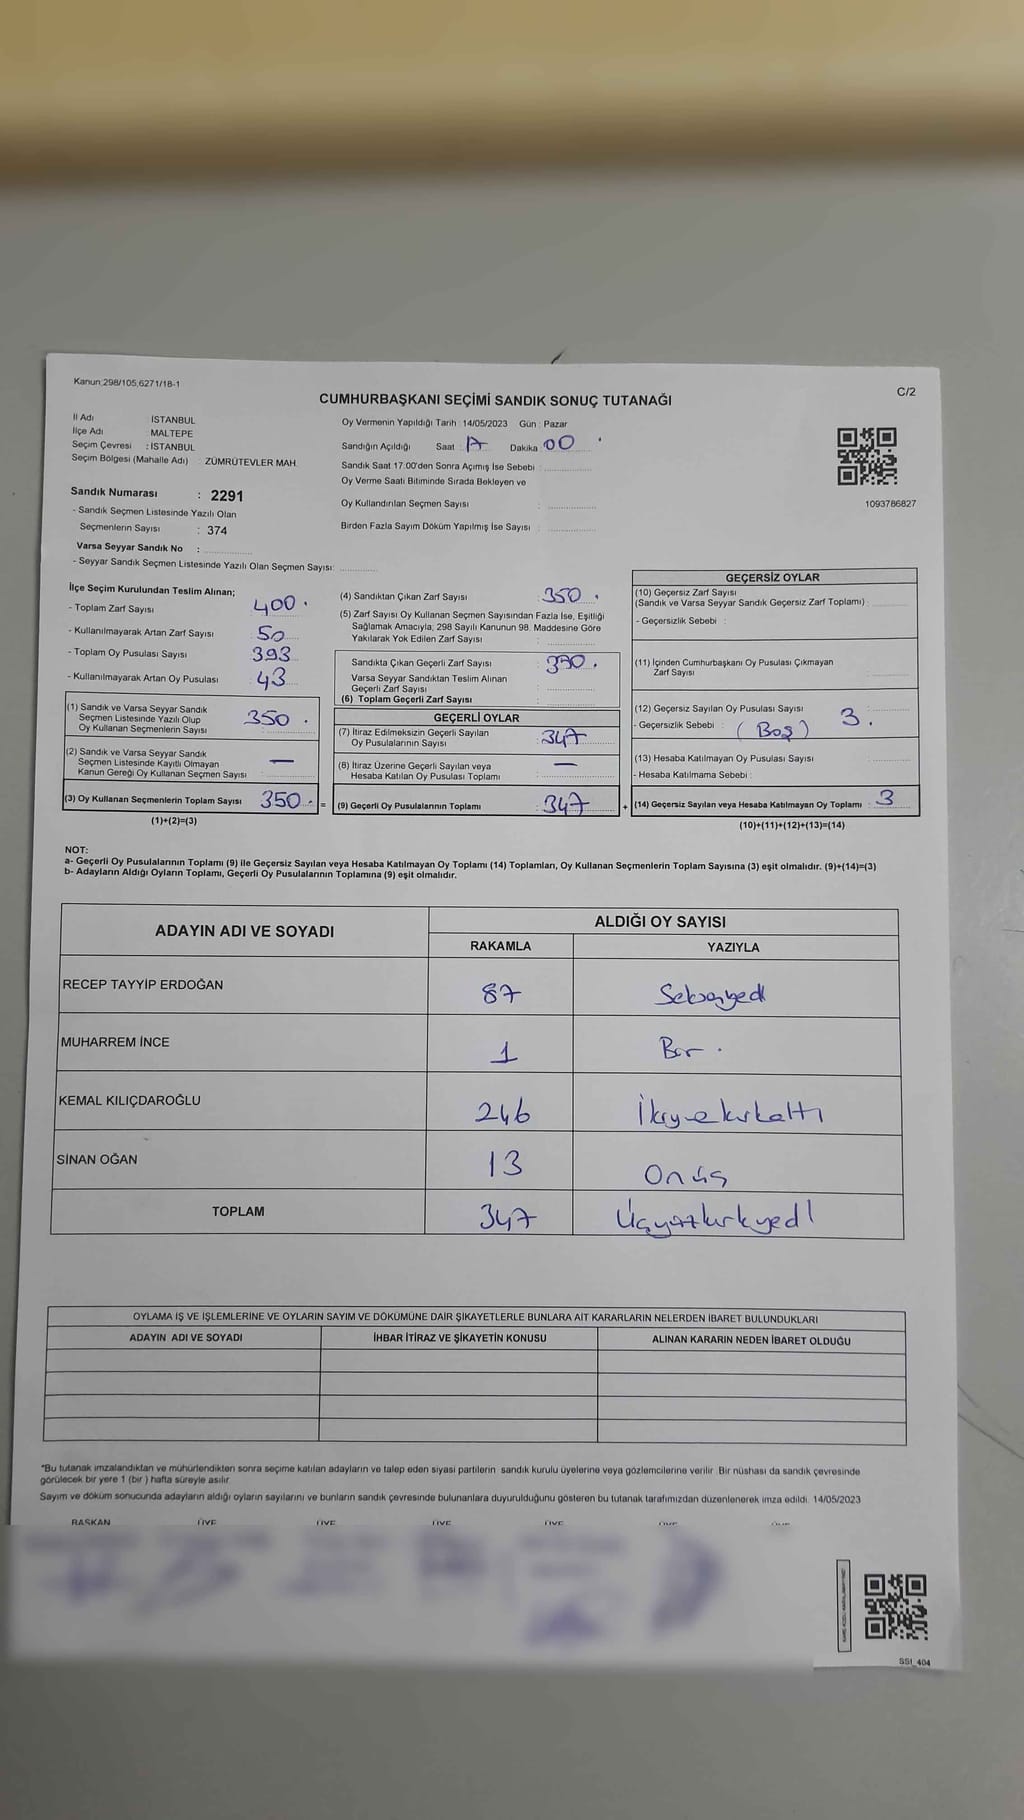 Kanun:298/105,6271/18-1
C/2
CUMHURBAŞKANI SEÇİMİ SANDIK SONUÇ TUTANAĞI
İl Adı : İSTANBUL
İlçe Adı : MALTEPE
Seçim Çevresi : İSTANBUL
Seçim Bölgesi (Mahalle Adı) : ZÜMRÜTEVLER MAH.
Oy Vermenin Yapıldığı Tarih : 14/05/2023 Gün : Pazar
Sandığın Açıldığı Saat : 17 Dakika : 00
Sandık Saat 17:00'den Sonra Açımış İse Sebebi :
Oy Verme Saati Bitiminde Sırada Bekleyen ve
Oy Kullandırılan Seçmen Sayısı :
Birden Fazla Sayım Döküm Yapılmış İse Sayısı :
1093786827
Sandık Numarası : 2291
- Sandık Seçmen Listesinde Yazılı Olan
Seçmenlerin Sayısı : 374
Varsa Seyyar Sandık No :
- Seyyar Sandık Seçmen Listesinde Yazılı Olan Seçmen Sayısı:
İlçe Seçim Kurulundan Teslim Alınan;
- Toplam Zarf Sayısı 400
- Kullanılmayarak Artan Zarf Sayısı 50
- Toplam Oy Pusulası Sayısı 393
- Kullanılmayarak Artan Oy Pusulası 43
(1) Sandık ve Varsa Seyyar Sandık
Seçmen Listesinde Yazılı Olup
Oy Kullanan Seçmenlerin Sayısı 350
(2) Sandık ve Varsa Seyyar Sandık
Seçmen Listesinde Kayıtlı Olmayan
Kanun Gereği Oy Kullanan Seçmen Sayısı —
(3) Oy Kullanan Seçmenlerin Toplam Sayısı 350 =
(1)+(2)=(3)
(4) Sandıktan Çıkan Zarf Sayısı : 350
(5) Zarf Sayısı Oy Kullanan Seçmen Sayısından Fazla İse, Eşitliği
Sağlamak Amacıyla; 298 Sayılı Kanunun 98. Maddesine Göre
Yakılarak Yok Edilen Zarf Sayısı :
Sandıkta Çıkan Geçerli Zarf Sayısı :
Varsa Seyyar Sandıktan Teslim Alınan
Geçerli Zarf Sayısı :
(6) Toplam Geçerli Zarf Sayısı :
GEÇERLİ OYLAR
(7) İtiraz Edilmeksizin Geçerli Sayılan
Oy Pusulalarının Sayısı : 347
(8) İtiraz Üzerine Geçerli Sayılan veya
Hesaba Katılan Oy Pusulası Toplamı : —
(9) Geçerli Oy Pusulalarının Toplamı : 347 +
GEÇERSİZ OYLAR
(10) Geçersiz Zarf Sayısı
(Sandık ve Varsa Seyyar Sandık Geçersiz Zarf Toplamı) :
- Geçersizlik Sebebi :
(11) İçinden Cumhurbaşkanı Oy Pusulası Çıkmayan
Zarf Sayısı :
(12) Geçersiz Sayılan Oy Pusulası Sayısı : 3
- Geçersizlik Sebebi : (Boş)
(13) Hesaba Katılmayan Oy Pusulası Sayısı :
- Hesaba Katılmama Sebebi :
(14) Geçersiz Sayılan veya Hesaba Katılmayan Oy Toplamı : 3
(10)+(11)+(12)+(13)=(14)
NOT:
a- Geçerli Oy Pusulalarının Toplamı (9) ile Geçersiz Sayılan veya Hesaba Katılmayan Oy Toplamı (14) Toplamları, Oy Kullanan Seçmenlerin Toplam Sayısına (3) eşit olmalıdır. (9)+(14)=(3)
b- Adayların Aldığı Oyların Toplamı, Geçerli Oy Pusulalarının Toplamına (9) eşit olmalıdır.
ADAYIN ADI VE SOYADI ALDIĞI OY SAYISI
RAKAMLA YAZIYLA
RECEP TAYYİP ERDOĞAN 87 Seksenyedi
MUHARREM İNCE 1 Bir
KEMAL KILIÇDAROĞLU 246 İkiyüzkırkaltı
SİNAN OĞAN 13 Onüç
TOPLAM 347 Üçyüzkırkyedi
OYLAMA İŞ VE İŞLEMLERİNE VE OYLARIN SAYIM VE DÖKÜMÜNE DAİR ŞİKAYETLERLE BUNLARA AİT KARARLARIN NELERDEN İBARET BULUNDUKLARI
ADAYIN ADI VE SOYADI İHBAR İTİRAZ VE ŞİKAYETİN KONUSU ALINAN KARARIN NEDEN İBARET OLDUĞU
*Bu tutanak imzalandıktan ve mühürlendikten sonra seçime katılan adayların ve talep eden siyasi partilerin sandık kurulu üyelerine veya gözlemcilerine verilir. Bir nüshası da sandık çevresinde
görülecek bir yere 1 (bir ) hafta süreyle asılır.
Sayım ve döküm sonucunda adayların aldığı oyların sayılarını ve bunların sandık çevresinde bulunanlara duyurulduğunu gösteren bu tutanak tarafımızdan düzenlenerek imza edildi. 14/05/2023
BAŞKAN ÜYE ÜYE ÜYE ÜYE
SSI_404